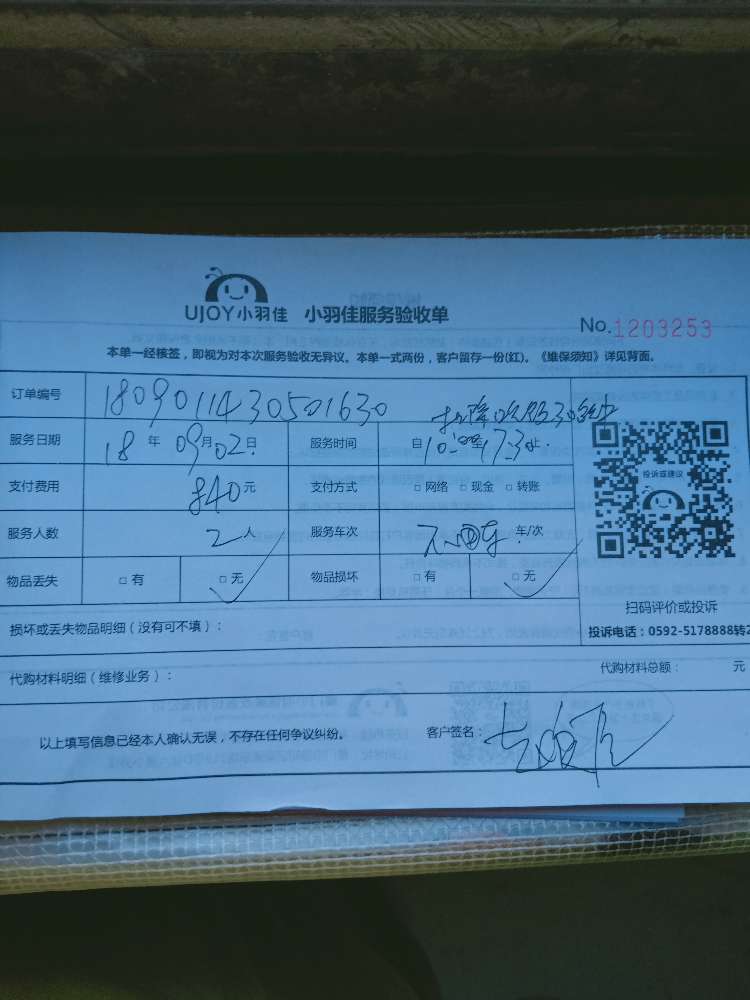 UJOY小羽佳 小羽佳服务验收单
No.1203253
本单一经核签，即视为对本次服务验收无异议。本单一式两份，客户留存一份(红)。《维保须知》详见背面。
订单编号 1809011430501630
扣除吃饭30分钟
服务日期 18年09月02日 服务时间 自10:00至17:30止
支付费用 840元 支付方式 □网络 □现金 □转账
服务人数 2人 服务车次 车/次
物品丢失 □有 □无 物品损坏 □有 □无
投诉或建议
扫码评价或投诉
损坏或丢失物品明细（没有可不填）：
投诉电话：0592-5178888转2
代购材料明细（维修业务）： 代购材料总额： 元
以上填写信息已经本人确认无误，不存在任何争议纠纷。 客户签名：